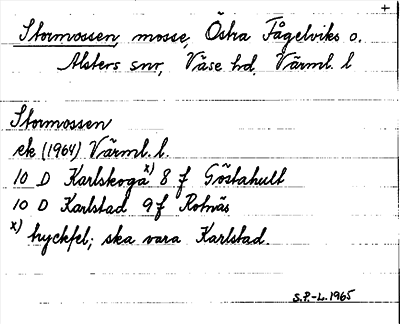 +
Stormossen, mosse, Östra Fågelviks o.
Alsters snr, Väse hd, Värml. l
Stormossen
ek (1964) Värml. l.
10 D Karlskoga x) 8 f Göstahult
10 D Karlstad 9 f Rotnäs
x) tryckfel; ska vara Karlstad.
S.P.-L. 1965